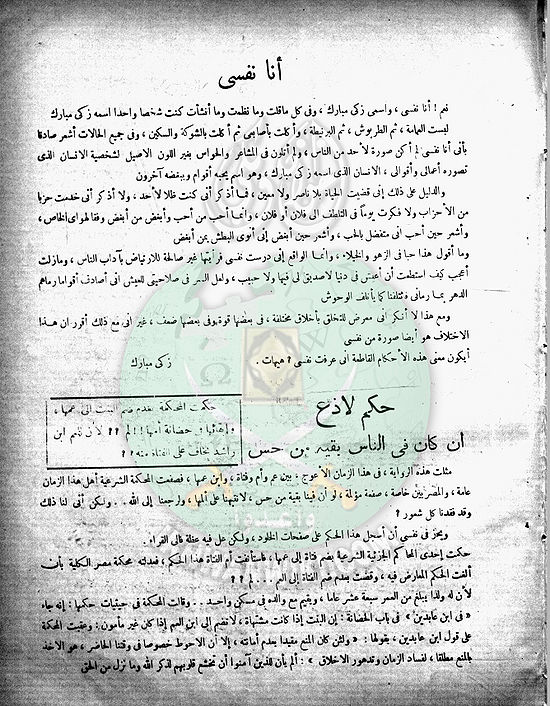 أنا نفسى
نعم ! أنا نفسى ، واسمى زكى مبارك ، وفى كل ماقلت وما نظمت وما أنشأت كنت شخصا واحدا اسمه زكى مبارك
لبست العمامة ، ثم الطربوش ، ثم البرنيطة ، وأكلت بأصابعى ثم أكلت بالشوكة والسكين ، وفى جميع الحالات أشعر صادقا
بأنى أنا نفسى لم أكن صورة لأحد من الناس ، ولم أتلون فى المشاعر والحواس بغير اللون الاصيل لشخصية الانسان الذى
تصوره أعمالى وأقوالى ، الانسان الذى اسمه زكى مبارك ، وهو اسم يحبه أقوام ويبغضه آخرون
والدليل على ذلك إنى قضيت الحياة بلا ناصر ولا معين ، فما أذكر أنى كنت ظلا لأحد ، ولا أذكر أنى خدمت حزبا
من الأحزاب ولا فكرت يوماً فى التلطف الى فلان أو فلان ، وانما أحب من أحب وأبغض من أبغض وفقا لهواى الخاص ،
وأشعر حين أحب انى متفضل بالحب ، وأشعر حين أبغض إنى أنوى البطش بمن أبغض
وما أقول هذا حبا فى الزهو والخيلاء ، وانما الواقع إنى درست نفسى فرأيتها غير صالحة للارتياض بآداب الناس ، ومازلت
أتعجب كيف استطعت أن أعيش فى دنيا لاصديق لى فيها ولا حبيب ، ولعل السر فى صلاحيتى للعيش انى أصادق أقواما رماهم
الدهر بما رمانى فتآلفنا كما يأتلف الوحوش
ومع هذا لا أنكر انى معرض للتخلق بأخلاق مختلفة ، فى بعضها قوة وفى بعضها ضعف ، غير انى مع ذلك أقرر ان هذا
الاختلاف هو أيضا صورة من نفسى
أيكون معنى هذه الأحكام القاطعة انى عرفت نفسى ؟ هيهات . زكى مبارك
حكم لاذع
أن كان فى الناس بقية من حس
حكمت المحكمة بعدم ضم البنت الى عمها ،
وإبقائها فى حضانة أمها !! لم ؟؟ لأن لهم ابن
راشد يخاف على الفتاة منه ؟؟
مثلت هذه الرواية ، فى هذا الزمان الأعوج ، بين عم وأم وفتاة ، وابن عمها ، فصفعت المحكمة الشرعية أهل هذا الزمان
عامة ، والمصريين خاصة ، صفعة مؤلمة ، لو أن فينا بقية من حس ، لانتبهنا على ألمها ، ورجعنا إلى الله .. ولكن أنى لنا ذلك
وقد فقدنا كل شعور ؟
ويحز فى نفسى أن أسجل هذا الحكم على صفحات الخلود ، ولكن عل فيه عظة تنالى القراء .
حكمت إحدى المحاكم الجزئية الشرعية بضم فتاة إلى عمها ، فاستأنفت أم الفتاة هذا الحكم ، فعدلته محكمة مصر الكلية بأن
ألغت الحكم المعارض فيه ، وقضت بعدم ضم الفتاة إلى العم ... لم ؟ ؟
لأن له ولدا يبلغ من العمر سبعة عشر عاما ، ويقيم مع والده فى مسكن واحد .. وقالت المحكمة فى حيثيات حكمها : إنه جاء
« فى ابن عابدين » فى باب الحضانة : إن البنت إذا كانت مشتهاة ، لا تضم إلى ابن العم إذا كان غير مأمون : وعقبت المحكمة
على قول ابن عابدين ، بقولها : « ولئن كان المنع مقيدا بعدم أمانته ، إلا أن الاحوط خصوصا فى وقتنا الحاضر ، هو الاخذ
بالمنع مطلقا ، لفساد الزمان وتدهور الاخلاق » : ألم يأن للذين آمنوا أن تخشع قلوبهم لذكر الله وما نزل من الحق